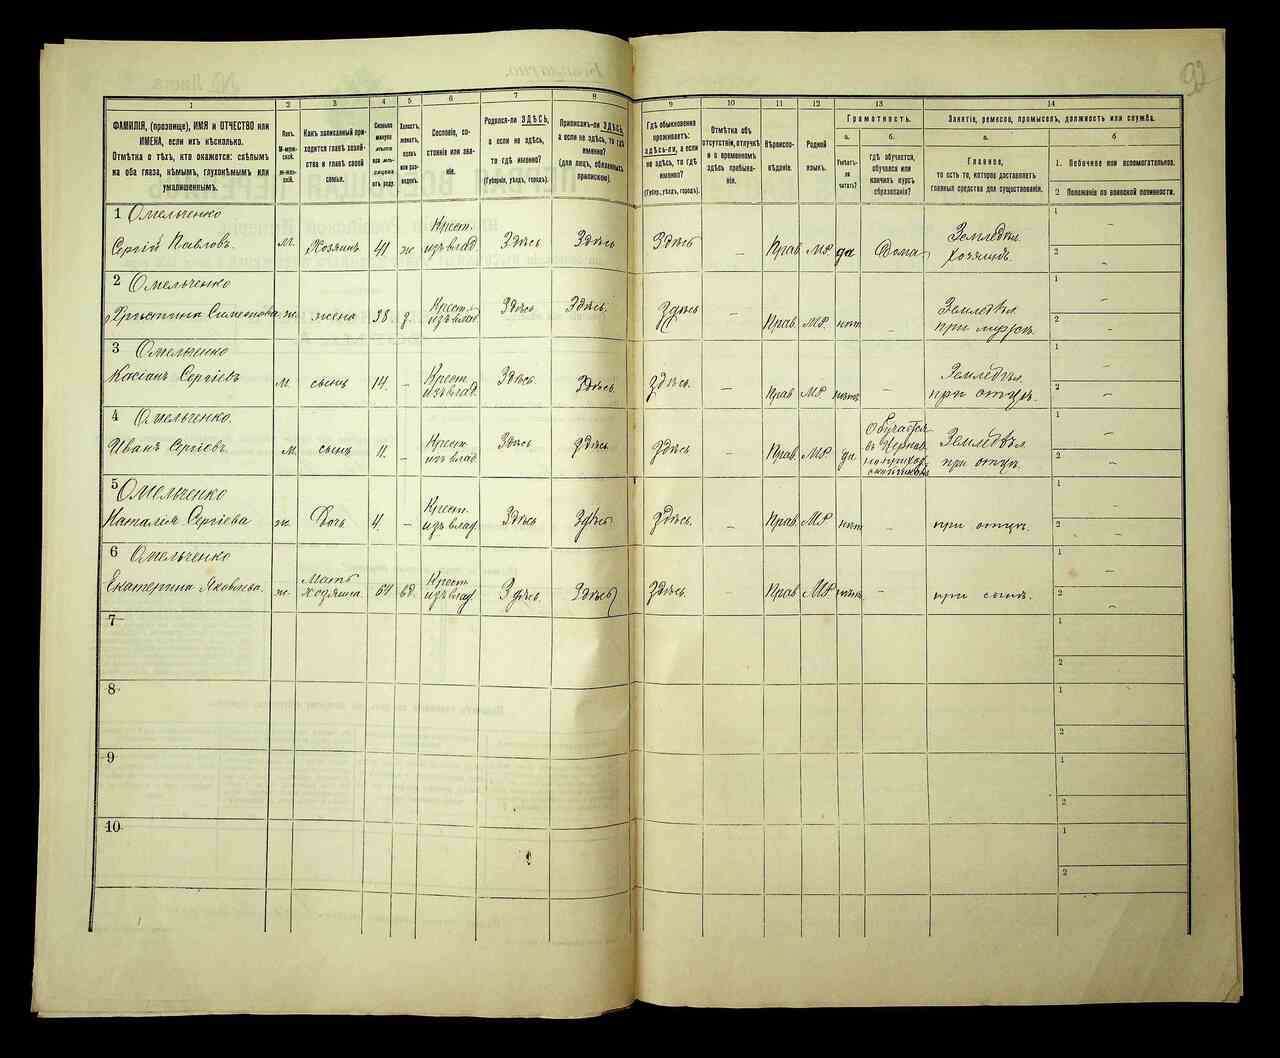 92
1
2
3
4
5
6
7
8
9
10
11
12
13
14
ФАМИЛІЯ, (прозвище), ИМЯ и ОТЧЕСТВО или
ИМЕНА, если ихъ нѣсколько.
Отмѣтка о тѣхъ, кто окажется: слѣпымъ
на оба глаза, нѣмымъ, глухонѣмымъ или
умалишеннымъ.
Полъ.
М-мужской.
Ж-женскій.
Какъ записанный приходится главѣ хозяйства и главѣ своей семьи.
Сколько минуло лѣтъ или мѣсяцевъ отъ роду.
Холостъ, женатъ, вдовъ или разведенъ.
Сословіе, состояніе или званіе.
Родился-ли ЗДѢСЬ,
а если не здѣсь,
то гдѣ именно?
(Губернія, уѣздъ, городъ).
Приписанъ-ли ЗДѢСЬ,
а если не здѣсь, то гдѣ
именно?
(для лицъ, обязанныхъ
припискою).
Гдѣ обыкновенно
проживаетъ:
здѣсь-ли, а если
не здѣсь, то гдѣ
именно?
(Губер., уѣздъ, городъ).
Отмѣтка объ
отсутствіи, отлучкѣ
и о временномъ
здѣсь пребываніи.
Вѣроисповѣданіе.
Родной
языкъ.
Грамотность.
а.
Умѣетъ-ли
читать?
б.
гдѣ обучается,
обучался или
кончилъ курсъ
образованія?
Занятіе, ремесло, промыселъ, должность или служба.
а.
Главное,
то есть то, которое доставляетъ
главныя средства для существованія.
б
1. Побочное или вспомогательное.
2 Положеніе по воинской повинности.
1 Омельченко
Сергій Павловъ. м. Хозяинъ 41 ж Крест. изъ влад. Здѣсь Здѣсь Здѣсь – Прав. МР да Дома Земледѣл. хозяинъ. 1 – 2 –
2 Омельченко
Христина Симеонова ж. жена 38 з. Крест. изъ влад. Здѣсь Здѣсь. Здѣсь – Прав. МР. нѣт – Земледѣл. при мужѣ. 1 – 2 –
3 Омельченко
Касіанъ Сергіевъ м. сынъ 14. – Крест. изъ влад. Здѣсь. Здѣсь. Здѣсь. – Прав МР нѣтъ – Земледѣл. при отцѣ. 1 – 2 –
4 Омельченко.
Иванъ Сергіевъ. м. сынъ 11. – Крест. изъ влад. Здѣсь. Здѣсь. Здѣсь – Прав. МР. да. Обучается въ Земледѣл. при отцѣ. 1 – 2 –
5 Омельченко
Наталия Сергіева ж. Дочь 4. – Крест. изъ влад. Здѣсь Здѣсь Здѣсь. – Прав. МР нѣт – при отцѣ. 1 – 2 –
6 Омельченко
Екатерина Яковлева. ж. Мать хозяина 64 вд. Крест. изъ влад. Здѣсь. Здѣсь Здѣсь. – Прав. МР. нѣтъ – при сынѣ. 1 – 2 –
7 1 2
8 1 2
9 1 2
10 1 2